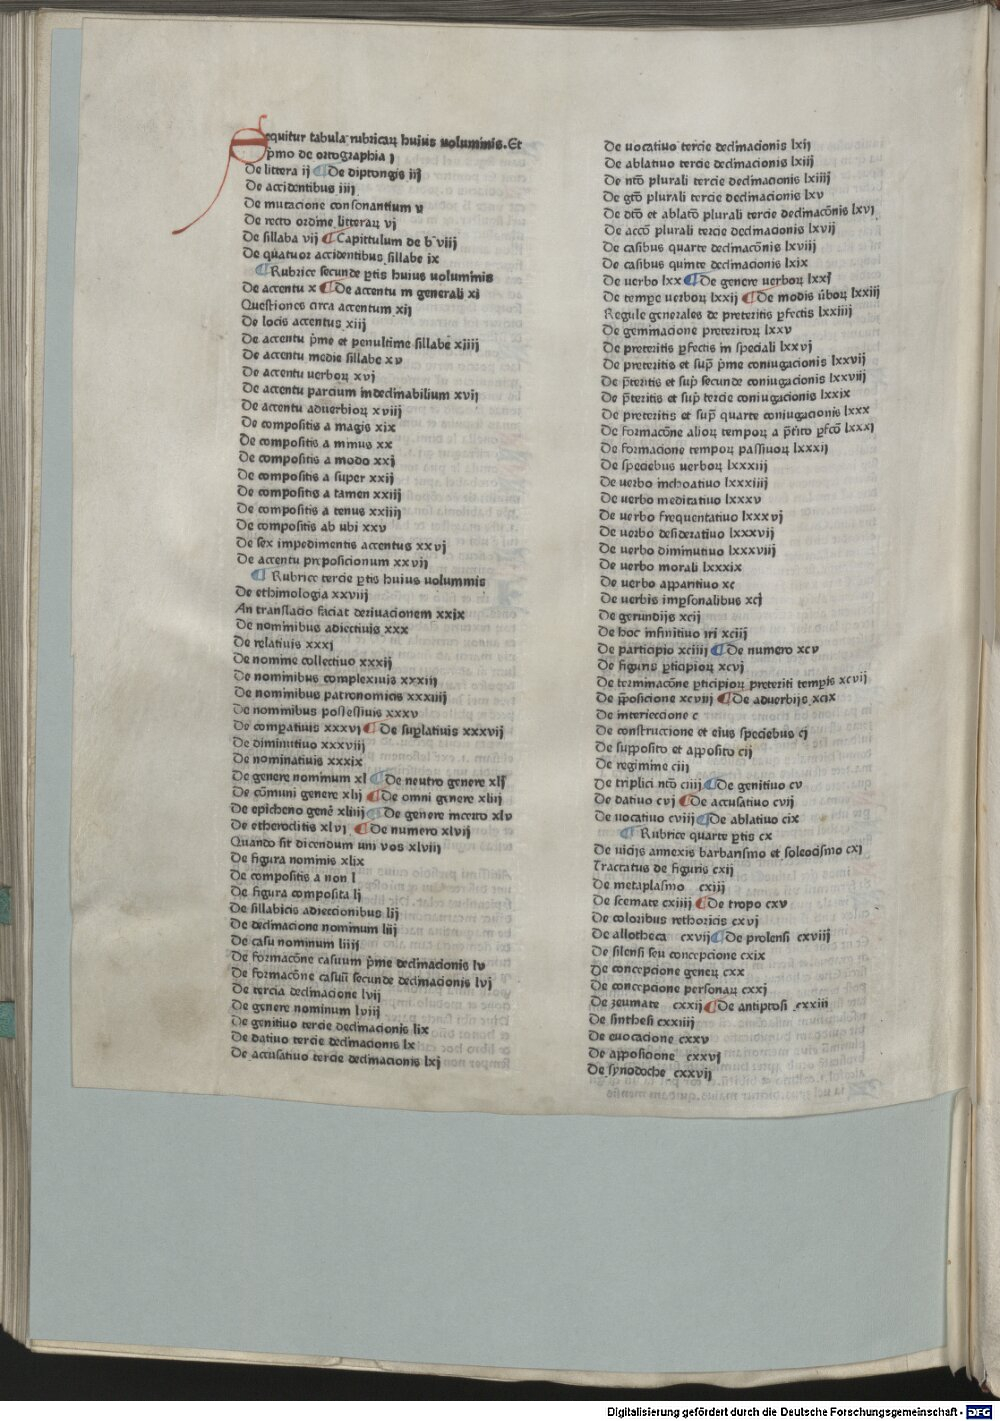 Sequitur tabula rubricaꝝ huius uoluminis. Et
p̄mo de ortographia j
De littera ij ¶ De diptongis iij
De accidentibus iiij
De mutacione consonantium v
De recto ordine litteraꝝ vj
De sillaba vij ¶ Capittulum de b viij
De quatuor accidentibus sillabe ix
¶ Rubrice secunde ꝑtis huius uoluminis
De accentu x ¶ De accentu in generali xi
Questiones circa accentum xij
De locis accentus xiij
De accentu p̄me et penultime sillabe xiiij
De accentu medie sillabe xv
De accentu uerboꝝ xvj
De accentu parcium indeclinabilium xvij
De accentu aduerbioꝝ xviij
De compositis a magis xix
De compositis a minus xx
De compositis a modo xxj
De compositis a super xxij
De compositis a tamen xxiij
De compositis a tenus xxiiij
De compositis ab ubi xxv
De sex impedimentis accentus xxvj
De accentu preposicionum xxvij
¶ Rubrice tercie ꝑtis huius uoluminis
De ethimologia xxviij
An translacio faciat deriuacionem xxix
De nominibus adiectiuis xxx
De relatiuis xxxj
De nomine collectiuo xxxij
De nominibus complexiuis xxxiij
De nominibus patronomicis xxxiiij
De nominibus possessiuis xxxv
De compatiuis xxxvj ¶ De suꝑlatiuis xxxvij
De diminutiuo xxxviij
De nominatiuis xxxix
De genere nominum xl ¶ De neutro genere xlj
De cōmuni genere xlij ¶ De omni genere xliij
De epicheno genē xliiij ¶ De genere incerto xlv
De etheroclitis xlvj ¶ De numero xlvij
Quando sit dicendum uni vos xlviij
De figura nominis xlix
De compositis a non l
De figura composita lj
De sillabicis adieccionibus lij
De declinacione nominum liij
De casu nominum liiij
De formacōne casuum p̄me declinacionis lv
De formacōne casuū secunde declinacionis lvj
De tercia declinacione lvij
De genere nominum lviij
De genitiuo tercie declinacionis lix
De datiuo tercie declinacionis lx
De accusatiuo tercie declinacionis lxj
De uocatiuo tercie declinacionis lxij
De ablatiuo tercie declinacionis lxiij
De ntō plurali tercie declinacionis lxiiij
De gtō plurali tercie declinacionis lxv
De dtō et ablatō plurali tercie declinacōnis lxvj
De accō plurali tercie declinacionis lxvij
De casibus quarte declinacōnis lxviij
De casibus quinte declinacionis lxix
De uerbo lxx ¶ De genere uerboꝝ lxxj
De tempe uerboꝝ lxxij ¶ De modis ūboꝝ lxxiij
Regule generales de preteritis ꝑfectis lxxiiij
De geminacione preteritoꝝ lxxv
De preteritis ꝑfectis in speciali lxxvj
De preteritis et sup̄ p̄me coniugacionis lxxvij
De p̄teritis et sup̄ secunde coniugacionis lxxviij
De p̄teritis et sup̄ tercie coniugacionis lxxix
De preteritis et sup̄ quarte coniugacionis lxxx
De formacōne alioꝝ tempoꝝ a p̄t̄ito ꝑfcō lxxxj
De formacione tempoꝝ passiuoꝝ lxxxij
De speciebus uerboꝝ lxxxiij
De uerbo inchoatiuo lxxxiiij
De uerbo meditatiuo lxxxv
De uerbo frequentatiuo lxxxvj
De uerbo desideratiuo lxxxvij
De uerbo diminutiuo lxxxviij
De uerbo morali lxxxix
De uerbo apparitiuo xc
De uerbis imꝑsonalibus xcj
De gerundijs xcij
De hoc infinitiuo iri xciij
De participio xciiij ¶ De numero xcv
De figuris ꝑticipioꝝ xcvj
De terminacōne ꝑticipioꝝ preteriti tempis xcvij
De p̄posicione xcviij ¶ De aduerbijs xcix
De interieccione c
De construccione et eius speciebus cj
De supposito et apposito cij
De regimine ciij
De triplici ntō ciiij ¶ De genitiuo cv
De datiuo cvj ¶ De accusatiuo cvij
De uocatiuo cviij ¶ De ablatiuo cix
¶ Rubrice quarte ꝑtis cx
De uicijs annexis barbarismo et soleocismo cxj
Tractatus de figuris cxij
De metaplasmo cxiij
De scemate cxiiij ¶ De tropo cxv
De coloribus rethoricis cxvj
De allotheca cxvij ¶ De prolensi cxviij
De silensi seu concepcione cxix
De concepcione geneꝝ cxx
De concepcione personaꝝ cxxj
De zeumate cxxij ¶ De antiptosi cxxiii
De sinthesi cxxiiij
De euocacione cxxv
De apposicione cxxvj
De synodoche cxxvij
Digitalisierung gefördert durch die Deutsche Forschungsgemeinschaft - DFG